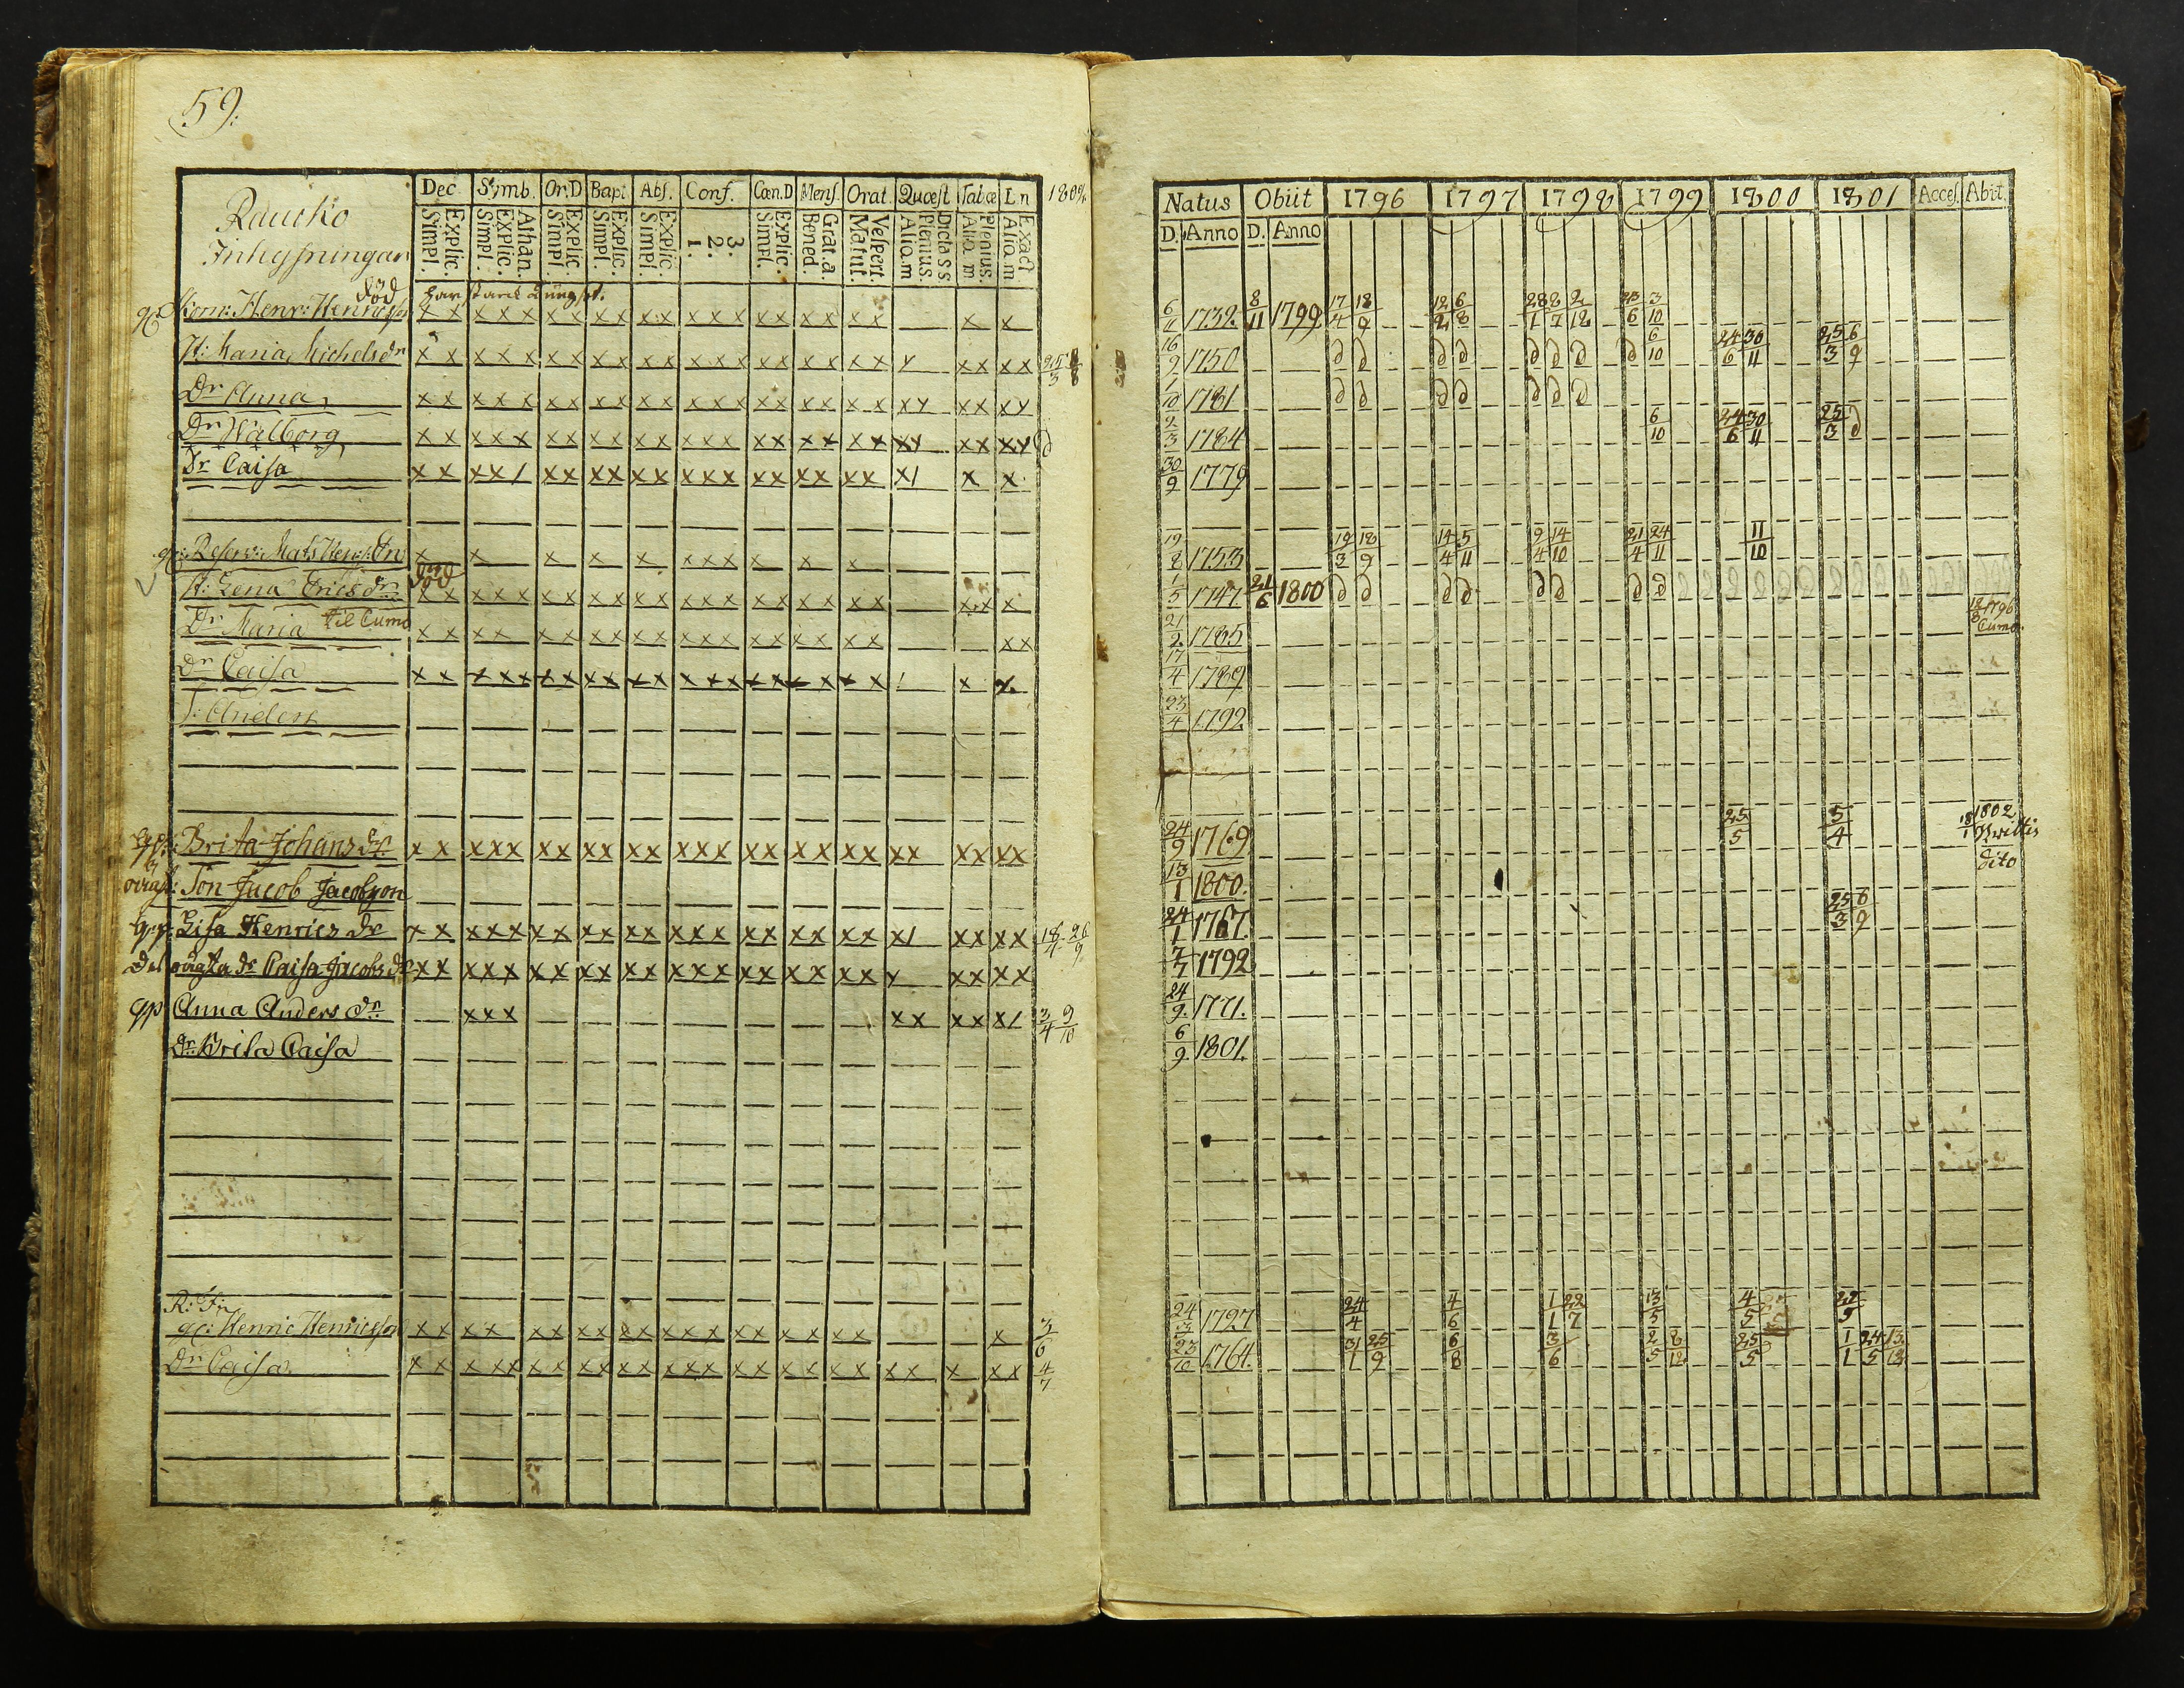 59.
Raucko
Inhysningar
Dec. Symb. Or.D Bapt. Abs. Conf. Cœn.D Mens. Orat. Quœst Tabœ Ln 180
Simpl. Explic. Simpl. Explic. Athan. Simpl. Explic. Simpl. Explic. Simpl. Explic. 1. 2. 3. Simpl. Explic. Bened. Grat. a. Matut. Vespert. Aliq. m Plenius. Dicta s s Aliq. m Plenius. Aliq. m Exact
död
Henr: Henricsson x x x x x x x x x x x x x x x x x x x x x x
H: Maria Michelsdr x x x x x x x x x x x x x x x x x x x x y x x x x
Dr Anna x x x x x x x x x x x x x x x x x x x x x y x x x y
Dr Walborg x x x x x x x x x x x x x x x x x x x x x y x x x y
Dr Caisa x x x x / x x x x x x x x x x x x x x x x / x x
Mats x x x x x x x x x x x
död
H: Lena Ericsdr x x x x x x x x x x x x x x x x x x x x x x x
Dr Maria til Cumo x x x x x x x x x x x x x x x x x x x x x
Dr Caisa x x x x x x x x x x x x x x x x x x x x x x
S: Anders
Brita Johansdr x x x x x x x x x x x x x x x x x x x x x x x x x x
Son Jacob Jacobsson
Lisa Henricsdr x x x x x x x x x x x x x x x x x x x x x / x x x x 18/4 26/9
dr Caisa Jacobsdr x x x x x x x x x x x x x x x x x x x x y x x x x
Anna Andersdr x x x x x x x x / 3/4 9/10
Dr Brita Caisa
R: Fr
Henric Henricsson x x x x x x x x x x x x x x x x x x x x 3/6
Dr Caisa x x x x x x x x x x x x x x x x x x x x x x x x x 4/7
Natus Obiit 1796 1797 1798 1799 1800 1801 Acces. Abit.
D. Anno D. Anno
6/11 1732 8/11 1799 17/4 18/9 12/2 6/8 28/1 8/7 2/12 23/6 3/10
16/9 1750 d d d d d d d d 6/10 24/6 30/11 25/3 6/9
1/10 1781 d d d d d d d
2/3 1784 6/10 24/6 30/11 25/3 d
30/9 1779
19/8 1753 19/3 18/9 14/4 5/11 9/4 14/10 21/4 24/11 11/10
1/5 1747 21/6 1800 d d d d d d d d
21/2 1785 1796 Cumo
17/4 1789
23/4 1792
24/9 1769 25/5 5/4 18/1 1802
13/1 1800. dito
24/1 1767. 25/3 6/9
7/7 1792
24/9 1771.
6/9 1801.
24/3 1727 24/4 4/6 1/1 22/7 13/5 4/5 22/5
23/10 1764. 31/1 25/9 6/8 3/6 2/5 8/12 25/5 1/1 24/5 13/12